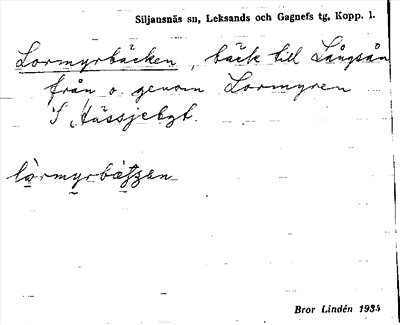 Siljansnäs sn, Leksands och Gagnefs tg, Kopp. l.
Lormyrbäcken, bäck till Långsån
från o. genom Lormyren
i Hässjebgt.
Bror Lindén 1934